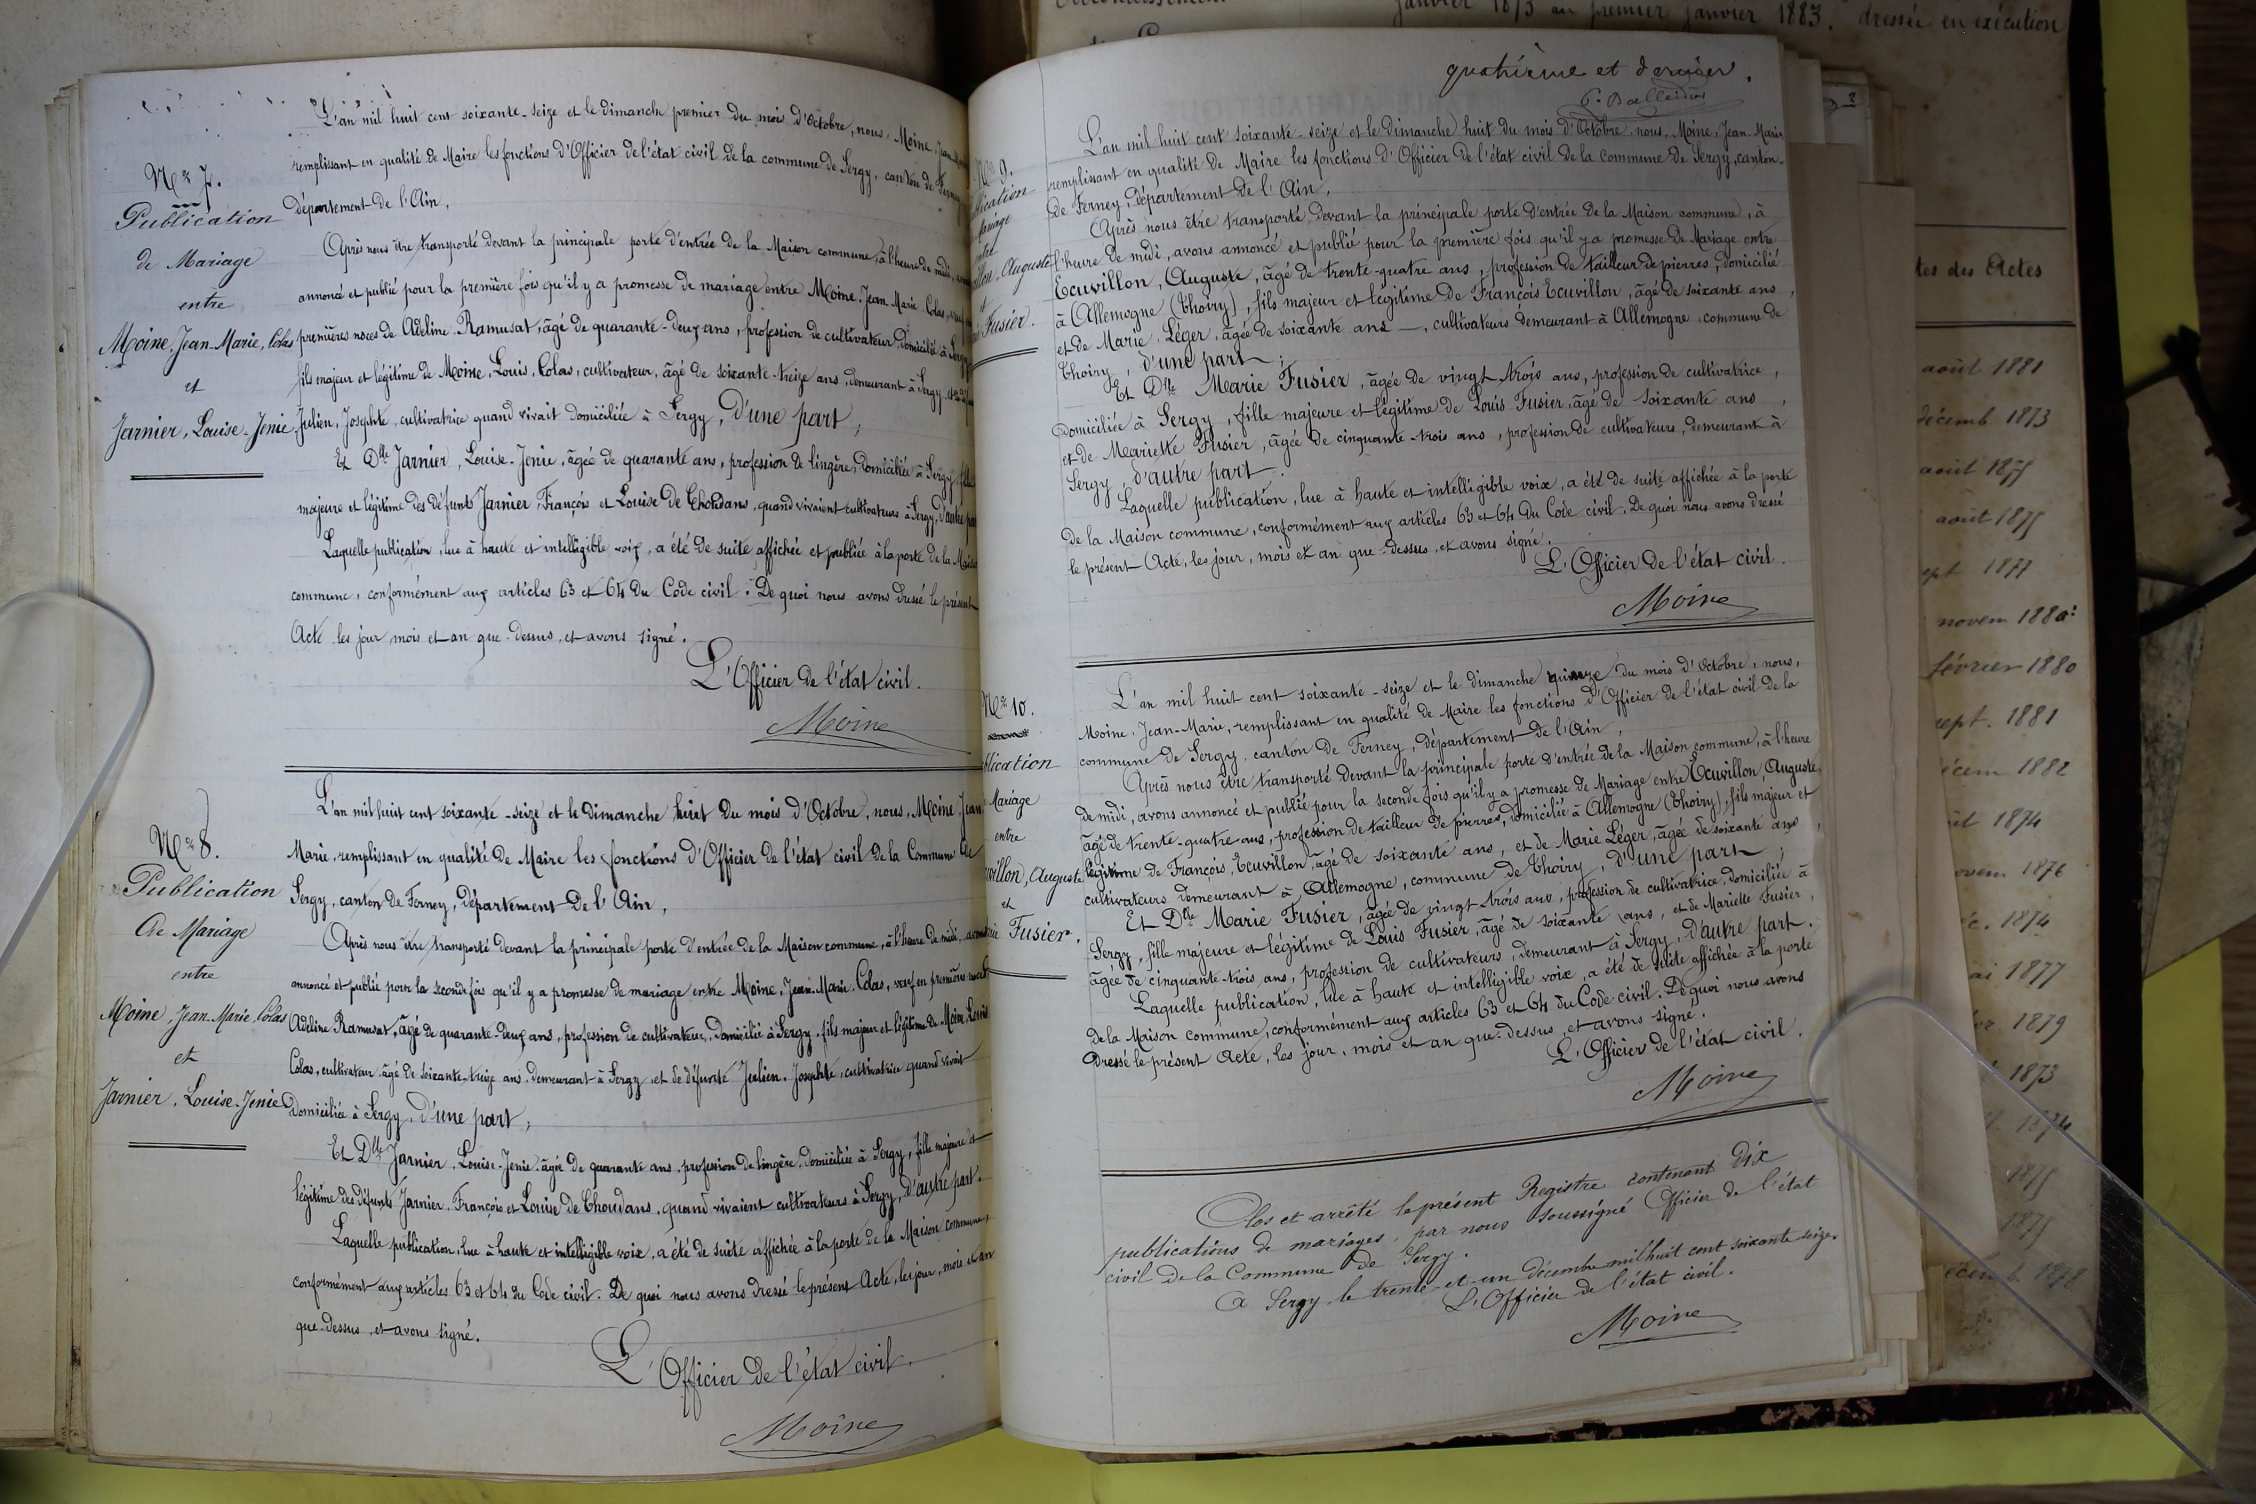 L'an mil huit cent soixante-seize et le dimanche premier du mois d'Octobre, nous, Moine, Jean
remplissant en qualité de Maire les fonctions d'Officier de l'état civil de la commune de Sergy, canton de Ferney
Département de l'Ain,
No 7.
Publication
de Mariage
entre
Moine, Jean-Marie, Colas
et
Jarnier, Louise-Jenie
Après nous être transporté devant la principale porte d'entrée de la Maison commune, à l'heure de midi,
annoncé et publié pour la première fois qu'il y a promesse de mariage entre Moine, Jean-Marie Colas, veuf
premières noces de Adeline Ramusat, âgé de quarante-deux ans, profession de cultivateur domicilié à Sergy
fils majeur et légitime de Moine, Louis, Colas, cultivateur, âgé de soixante-treize ans, demeurant à Sergy et de
Julien, Josephte, cultivatrice quand vivait domiciliée à Sergy, d'une part,
Et Dlle Jarnier, Louise-Jenie, âgée de quarante ans, profession de lingère, domiciliée à Sergy, fille
majeure et légitime des défunts Jarnier François et Louise de Choudans, quand vivaient cultivateurs à Sergy, d'autre part
Laquelle publication, lue à haute et intelligible voix, a été de suite affichée et publiée à la porte de la Maison
commune, conformément aux articles 63 et 64 du Code civil. De quoi nous avons dressé le présent
Acte les jour, mois et an que dessus, et avons signé.
L'Officier de l'état civil.
Moine
No 8.
Publication
de Mariage
entre
Moine, Jean-Marie, Colas
et
Jarnier, Louise-Jenie
L'an mil huit cent soixante-seize et le dimanche huit du mois d'Octobre, nous, Moine, Jean
Marie, remplissant en qualité de Maire les fonctions d'Officier de l'état civil de la Commune de
Sergy, canton de Ferney, Département de l'Ain,
Après nous être transporté devant la principale porte d'entrée de la Maison commune, à l'heure de midi, avons
annoncé et publié pour la seconde fois qu'il y a promesse de mariage entre Moine, Jean-Marie Colas, veuf en premières noces
Adeline Ramusat, âgé de quarante-deux ans, profession de cultivateur, domicilié à Sergy, fils majeur et légitime de Moine, Louis
Colas, cultivateur âgé de soixante-treize ans, demeurant à Sergy, et de défunte Julien, Josephte, cultivatrice quand vivait
domiciliée à Sergy, d'une part,
Et Dlle Jarnier, Louise-Jenie, âgée de quarante ans, profession de lingère, domiciliée à Sergy, fille majeure et
légitime des défunts Jarnier, François et Louise de Choudans, quand vivaient cultivateurs à Sergy, d'autre part.
Laquelle publication, lue à haute et intelligible voix, a été de suite affichée à la porte de la Maison commune,
conformément aux articles 63 et 64 du Code civil. De quoi nous avons dressé le présent Acte, les jour, mois et an
que dessus, et avons signé.
L'Officier de l'état civil.
Moine
quatrième et dernier.
No 9.
blication
Mariage
entre
Auguste
et
Fusier.
L'an mil huit cent soixante-seize et le dimanche huit du mois d'Octobre, nous, Moine, Jean-Marie
remplissant en qualité de Maire les fonctions d'Officier de l'état civil de la commune de Sergy, canton
de Ferney, département de l'Ain,
Après nous être transporté devant la principale porte d'entrée de la Maison commune, à
l'heure de midi, avons annoncé et publié pour la première fois qu'il y a promesse de Mariage entre
Ecuvillon, Auguste, âgé de trente-quatre ans, profession de tailleur de pierres, domicilié
à Allemogne (Thoiry), fils majeur et légitime de François Ecuvillon, âgé de soixante ans,
et de Marie Léger, âgée de soixante ans —, cultivateurs demeurant à Allemogne, commune de
Thoiry, d'une part;
Et Dlle Marie Fusier, âgée de vingt trois ans, profession de cultivatrice,
domiciliée à Sergy, fille majeure et légitime de Louis Fusier, âgé de soixante ans,
et de Mariette Fusier, âgée de cinquante-trois ans, profession de cultivateurs, demeurant à
Sergy, d'autre part.
Laquelle publication, lue à haute et intelligible voix, a été de suite affichée à la porte
de la Maison commune, conformément aux articles 63 et 64 du Code civil. De quoi nous avons dressé
le présent Acte, les jour, mois et an que dessus, et avons signé.
L'Officier de l'état civil.
Moine
No 10.
blication
Mariage
entre
villon, Auguste
et
Fusier.
L'an mil huit cent soixante-seize et le dimanche quinze du mois d'Octobre, nous,
Moine, Jean-Marie, remplissant en qualité de Maire les fonctions d'Officier de l'état civil de la
commune de Sergy, canton de Ferney, département de l'Ain,
Après nous être transporté devant la principale porte d'entrée de la Maison commune, à l'heure
de midi, avons annoncé et publié pour la seconde fois qu'il y a promesse de Mariage entre Ecuvillon, Auguste,
âgé de trente-quatre ans, profession de tailleur de pierres, domicilié à Allemogne (Thoiry), fils majeur et
légitime de François, Ecuvillon, âgé de soixante ans, et de Marie Léger, âgée de soixante ans,
cultivateurs demeurant à Allemogne, commune de Thoiry, d'une part;
Et Dlle Marie Fusier, âgée de vingt trois ans, profession de cultivatrice, domiciliée à
Sergy, fille majeure et légitime de Louis Fusier, âgé de soixante ans, et de Mariette Fusier,
âgée de cinquante-trois ans, profession de cultivateurs, demeurant à Sergy, d'autre part.
Laquelle publication, lue à haute et intelligible voix, a été de suite affichée à la porte
de la Maison commune, conformément aux articles 63 et 64 du Code civil. De quoi nous avons
dressé le présent Acte, les jour, mois et an que dessus, et avons signé.
L'Officier de l'état civil.
Moine
Clos et arrêté le présent Registre contenant Dix
publications de mariages, par nous soussigné Officier de l'état
civil de la Commune de Sergy.
A Sergy le trente-et-un décembre mil huit cent soixante seize.
L'Officier de l'état civil.
Moine
janvier 1873 au premier janvier 1883, dressée en exécution
tes des Actes
août 1881
décemb 1873
août 1875
août 1875
sept 1877
novem 1880
février 1880
sept. 1881
décem 1882
1874
novem 1876
1874
mai 1877
1879
1873
1874
1875
1875
décemb. 1878